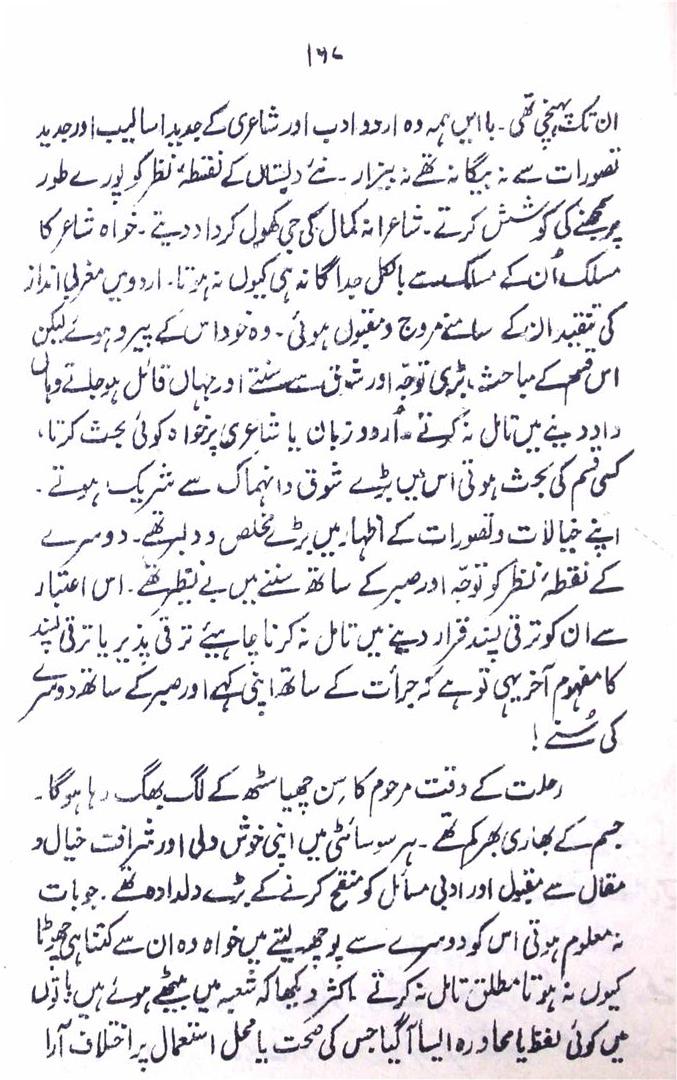 ۱۶۸
ان تک پہنچی تھی۔ با ایں ہمہ وہ اردو ادب اور شاعری کے جدید اسالیب اور جدید
تصورات سے نہ بیگانہ تھے نہ بیزار۔ نئے دبستاں کے نقطۂ نظر کو پورے طور
پر سمجھنے کی کوشش کرتے۔ شاعرانہ کمال کی جی کھول کر داد دیتے۔ خواہ شاعر کا
مسلک اُن کے مسلک سے بالکل جداگانہ ہی کیوں نہ ہوتا۔ اردو میں مغربی انداز
کی تنقید ان کے سامنے مروج و مقبول ہوئی۔ وہ خود اس کے پیرو ہوئے لیکن
اس قسم کے مباحث بڑی توجّہ اور شوق سے سنتے اور جہاں قائل ہو جاتے وہاں
داد دینے میں تامل نہ کرتے۔ اُردو زبان یا شاعری پر خواہ کوئی بحث کرتا،
کسی قسم کی بحث ہوتی اس میں بڑے شوق و انہماک سے شریک ہوتے۔
اپنے خیالات و تصورات کے اظہار میں بڑے مخلص و دلیر تھے۔ دوسرے
کے نقطۂ نظر کو توجّہ اور صبر کے ساتھ سننے میں بے نظیر تھے۔ اس اعتبار
سے ان کو ترقی پسند قرار دینے میں تامل نہ کرنا چاہیئے ترقی پذیر یا ترقی پسند
کا مفہوم آخر یہی تو ہے کہ جرأت کے ساتھ اپنی کہے اور صبر کے ساتھ دوسرے
کی سُنے!
رحلت کے وقت مرحوم کا سِن چھیاسٹھ کے لگ بھگ رہا ہوگا۔
جسم کے بھاری بھرکم تھے۔ ہر سوسائٹی میں اپنی خوش دلی اور شرافت خیال و
مقال سے مقبول اور ادبی مسائل کو منقح کرنے کے بڑے دلدادہ تھے۔ جو بات
نہ معلوم ہوتی اس کو دوسرے سے پوچھ لیتے میں خواہ وہ ان سے کتنا ہی چھوٹا
کیوں نہ ہوتا مطلق تامل نہ کرتے اکثر دیکھا کہ شعبہ میں بیٹھے ہوئے ہیں باتوں
میں کوئی لفظ یا محاورہ ایسا آگیا جس کی صحت یا محل استعمال پر اختلاف آرا